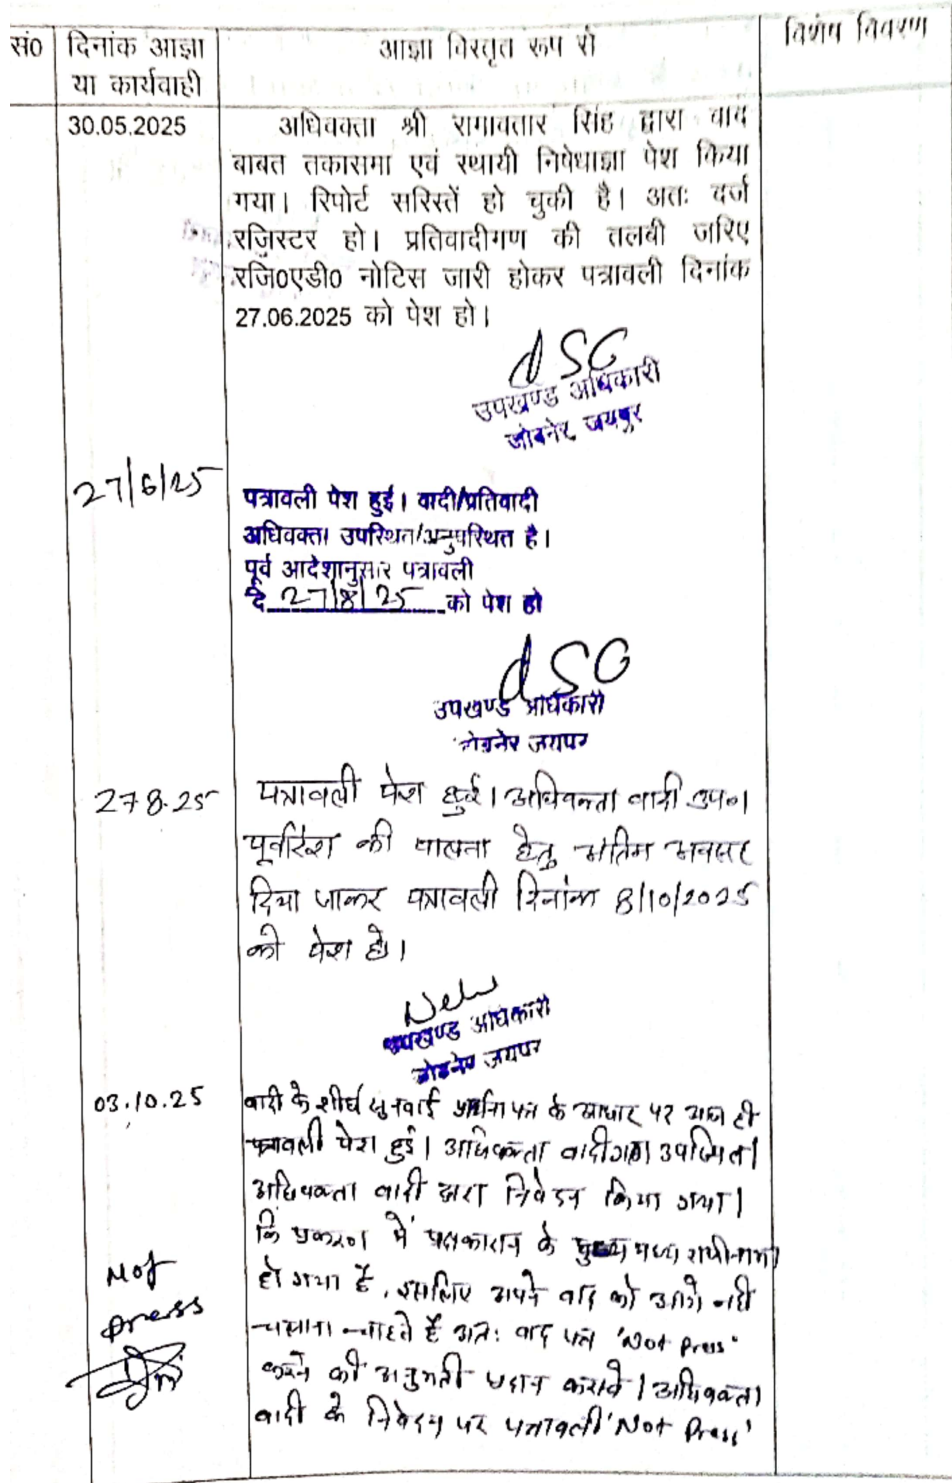 सं0 दिनांक आज्ञा या कार्यवाही आज्ञा विस्तृत रूप से विशेष विवरण
30.05.2025 अधिवक्ता श्री रामावतार सिंह द्वारा वाद
बाबत तकासमा एवं स्थायी निषेधाज्ञा पेश किया
गया। रिपोर्ट सरिस्तें हो चुकी है। अतः दर्ज
रजिस्टर हो। प्रतिवादीगण की तलबी जरिए
रजि0एडी0 नोटिस जारी होकर पत्रावली दिनांक
27.06.2025 को पेश हो।
उपखण्ड अधिकारी
जोबनेर, जयपुर
27/6/25 पत्रावली पेश हुई। वादी/प्रतिवादी
अधिवक्ता उपस्थित/अनुपस्थित है।
पूर्व आदेशानुसार पत्रावली
दि 27/8/25 को पेश हो
उपखण्ड अधिकारी
जोबनेर जयपुर
27.8.25 पत्रावली पेश हुई। अधिवक्ता वादी उप०।
पूर्वादेश की पालना हेतु अंतिम अवसर
दिया जाकर पत्रावली दिनांक 8/10/2025
को पेश हो।
उपखण्ड अधिकारी
जोबनेर जयपुर
03.10.25 वादी के शीघ्र सुनवाई प्रार्थना पत्र के आधार पर आज ही
पत्रावली पेश हुई। अधिवक्ता वादीगण उपस्थित।
अधिवक्ता वादी द्वारा निवेदन किया गया।
कि प्रकरण में पक्षकारान के मध्य राजीनामा
हो गया है, इसलिए अपने वाद को आगे नहीं
चलाना चाहते है अतः वाद पत्र 'Not Press'
करने की अनुमती प्रदान करावे। अधिवक्ता
वादी के निवेदन पर पत्रावली 'Not Press'
Not
press